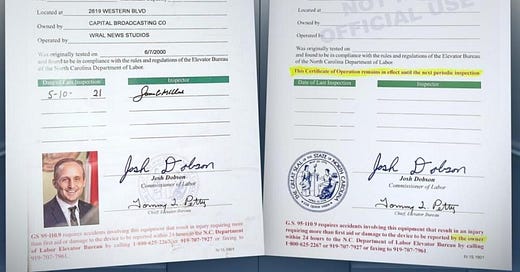 Located at 2619 WESTERN BLVD
Owned by CAPITAL BROADCASTING CO
WRAL NEWS STUDIOS
Was originally tested on 6/7/2000
and found to be in compliance with the rules and regulations of the Elevator Bureau
of the North Carolina Department of Labor.
Date of Last Inspection Inspector
5-10- 21
Josh Dobson
Josh Dobson
Commissioner of Labor
Tommy L. Petty
Chief Elevator Bureau
G.S. 95-110.9 requires accidents involving this equipment that result in injury requiring more
than first aid or damage to the device to be reported within 24 hours to the N.C. Department
of Labor Elevator Bureau by calling 1-800-625-2267 or 919-707-7927 or faxing to
919-707-7961.
NOT
OFFICIAL USE
Located at
Owned by
Was originally tested on
and found to be in compliance with the rules and regulations of the Elevator Bureau
of the North Carolina Department of Labor.
This Certificate of Operation remains in effect until the next periodic inspection
Date of Last Inspection Inspector
THE GREAT SEAL OF THE STATE OF NORTH CAROLINA
Josh Dobson
Josh Dobson
Commissioner of Labor
Tommy L. Petty
Chief Elevator Bureau
G.S. 95-110.9 requires accidents involving this equipment that result in an injury
requiring more than first aid or damage to the device to be reported by the owner
within 24 hours to the N.C. Department of Labor Elevator Bureau by calling
1-800-625-2267 or 919-707-7927 or faxing to 919-707-7961.